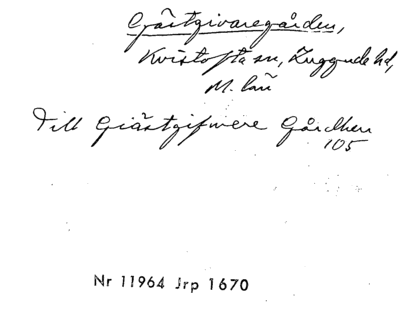 Gästgivaregården,
Kvistofta sn, Luggude hd,
M. län
Till Giästgifwere Gårdhen
105
Nr 11964 Jrp 1670